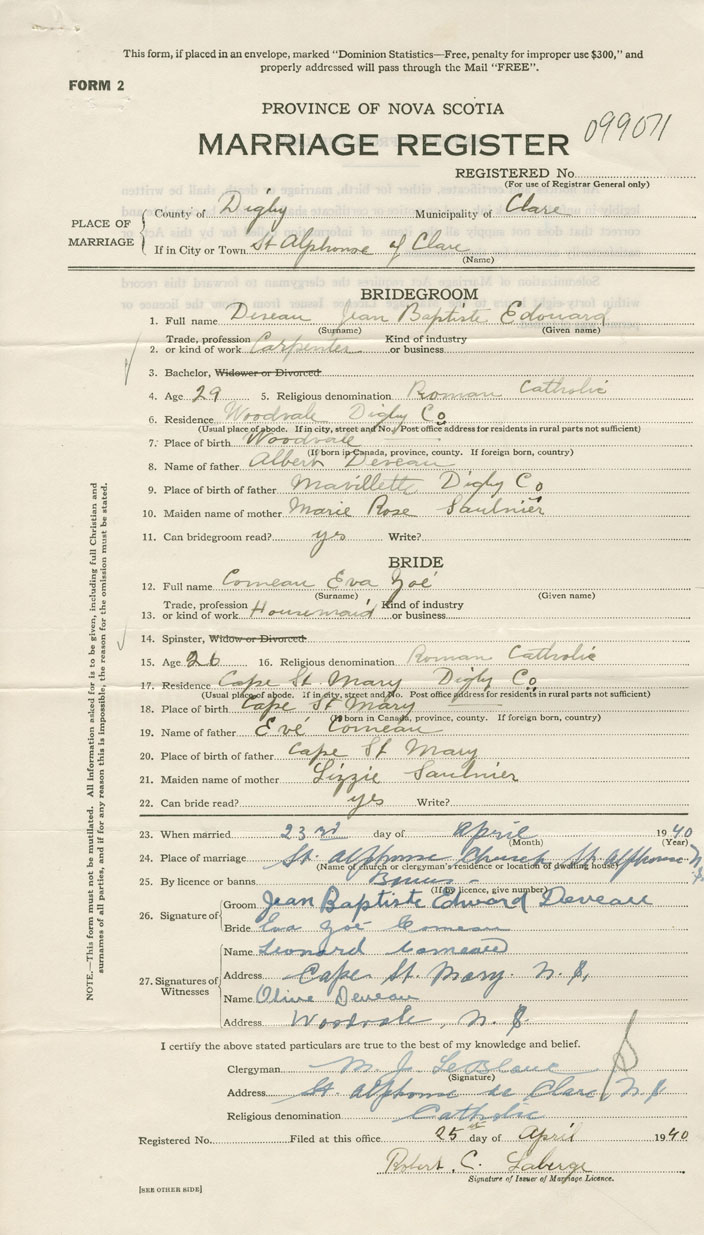 This form, if placed in an envelope, marked "Dominion Statistics—Free, penalty for improper use $300," and
properly addressed will pass through the Mail "FREE".
FORM 2
PROVINCE OF NOVA SCOTIA
099071
MARRIAGE REGISTER
REGISTERED No.
(For use of Registrar General only)
PLACE OF MARRIAGE
County of Digby Municipality of Clare
If in City or Town St Alphonse of Clare
(Name)
BRIDEGROOM
1. Full name Deveau Jean Baptiste Edouard
(Surname) (Given name)
2. Trade, profession or kind of work Carpenter Kind of industry or business
3. Bachelor, Widower or Divorced
4. Age 29 5. Religious denomination Roman Catholic
6. Residence Woodvale Digby Co
(Usual place of abode. If in city, street and No. Post office address for residents in rural parts not sufficient)
7. Place of birth Woodvale
(If born in Canada, province, county. If foreign born, country)
8. Name of father Albert Deveau
9. Place of birth of father Mavillette Digby Co
10. Maiden name of mother Marie Rose Saulnier
11. Can bridegroom read? yes Write?
BRIDE
12. Full name Comeau Eva Zoé
(Surname) (Given name)
13. Trade, profession or kind of work Housemaid Kind of industry or business
14. Spinster, Widow or Divorced
15. Age 26 16. Religious denomination Roman Catholic
17. Residence Cape St Mary Digby Co
(Usual place of abode. If in city, street and No. Post office address for residents in rural parts not sufficient)
18. Place of birth Cape St Mary
(If born in Canada, province, county. If foreign born, country)
19. Name of father Evé Comeau
20. Place of birth of father Cape St Mary
21. Maiden name of mother Lizzie Saulnier
22. Can bride read? yes Write?
23. When married 23rd day of April 1940
(Month) (Year)
24. Place of marriage St. Alphonse Church St. Alphonse N.S.
(Name of church or clergyman's residence or location of dwelling house)
25. By licence or banns Banns
(If by licence, give number)
26. Signature of
Groom Jean Baptiste Edward Deveau
Bride Eva Zoé Comeau
27. Signatures of Witnesses
Name Leonard Comeau
Address Cape St. Mary. N.S.
Name Olive Deveau
Address Woodvale, N.S.
I certify the above stated particulars are true to the best of my knowledge and belief.
Clergyman M. J. LeBlanc
(Signature)
Address St Alphonse de Clare, N.S
Religious denomination Catholic
Registered No. Filed at this office 25th day of April 1940
Robert. C. Laberge
Signature of Issuer of Marriage Licence.
[SEE OTHER SIDE]
NOTE.—This form must not be mutilated. All information asked for is to be given, including full Christian and
surnames of all parties, and if for any reason this is impossible, the reason for the omission must be stated.